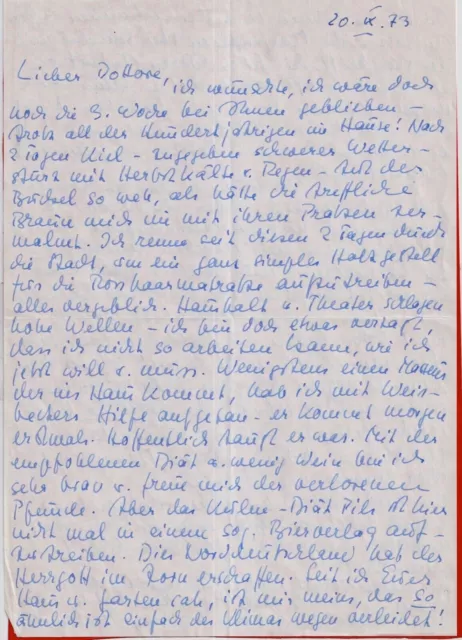 20. IX. 73
Lieber Dottore,
ich wünschte, ich wäre doch
noch die 3. Woche bei Ihnen geblieben –
trotz all der Hundertjährigen im Hause! Nach
2 Tagen Kiel – zugegeben schwerer Wetter-
sturz mit Herbstkälte u. Regen – tut der
Buckel so weh, als hätte die treffliche
Braun mich nie mit ihren Pratzen zer-
malmt. Ich renne seit diesen 2 Tagen durch
die Stadt, um ein ganz simples Holzgestell
für die Rosshaarmatratze aufzutreiben –
alles vergeblich. Haushalt u. Theater schlagen
hohe Wellen – ich bin doch etwas verzagt,
dass ich nicht so arbeiten kann, wie ich
jetzt will u. muss. Wenigstens einen
der ins Haus kommt, hab ich mit Weis-
beckers Hilfe aufgetan – er kommt morgen
erstmals. Hoffentlich taugt er was. Mit der
empfohlenen Diät u. wenig Wein bin ich
sehr brav u. freue mich der verlorenen
Pfunde. Aber das – Diät Pils ist hier
nicht mal in einem sog. Bierverlag auf-
zutreiben. Dies Nordmutterland hat der
Herrgott im Zorn erschaffen. Seit ich Euer
Haus u. Garten sah, ist mir meins, das so
ähnlich ist einfach des Klimas wegen verleidet!